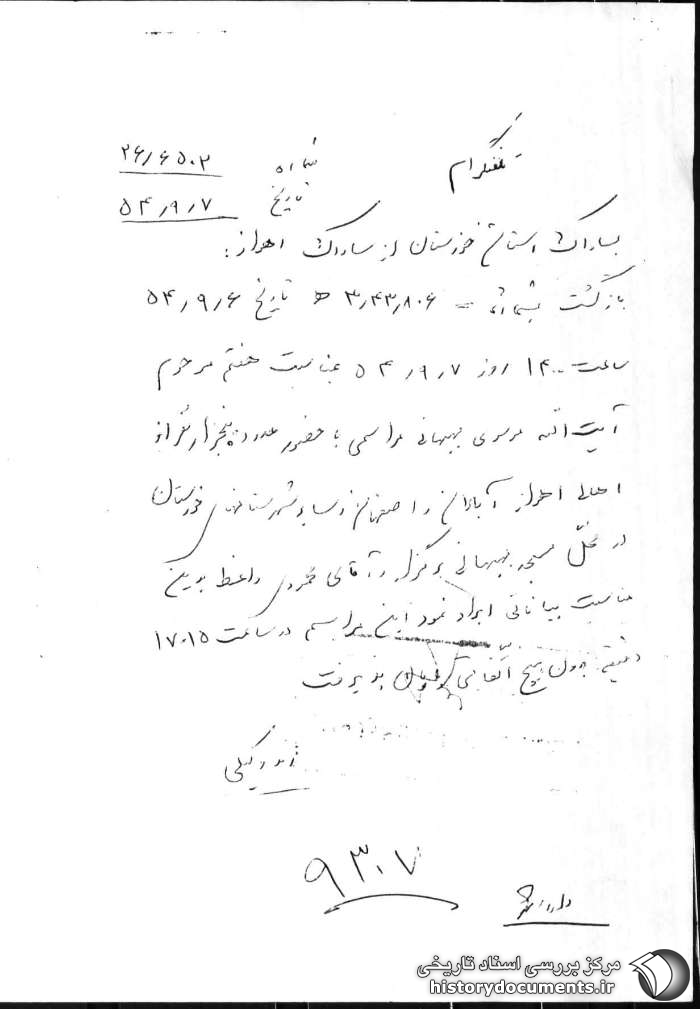 تلفنگرام
شماره ۲۶/۶۵۰۲
تاریخ ۵۴/۹/۷
بساواک استان خوزستان از ساواک اهواز:
بازگشت بشماره ۳/۴۳۸۰۶ ﻫ تاریخ ۵۴/۹/۶
ساعت ۱۴۰۰ روز ۵۴/۹/۷ بمناسبت هفتم مرحوم
آیت اله موسوی بهبهانی مراسمی با حضور حدود پنجهزار نفر از
اهالی اهواز آبادان و اصفهان و سایر شهرستانهای خوزستان
در محل مسجد بهبهانی برگزار و آقای واعظ بدین
مناسبت بیاناتی ایراد نمود این مراسم در ساعت ۱۷۰۱۵
دقیقه بدون هیچ اتفاقی پایان پذیرفت
۹۳۰۷
مرکز بررسی اسناد تاریخی
historydocuments.ir